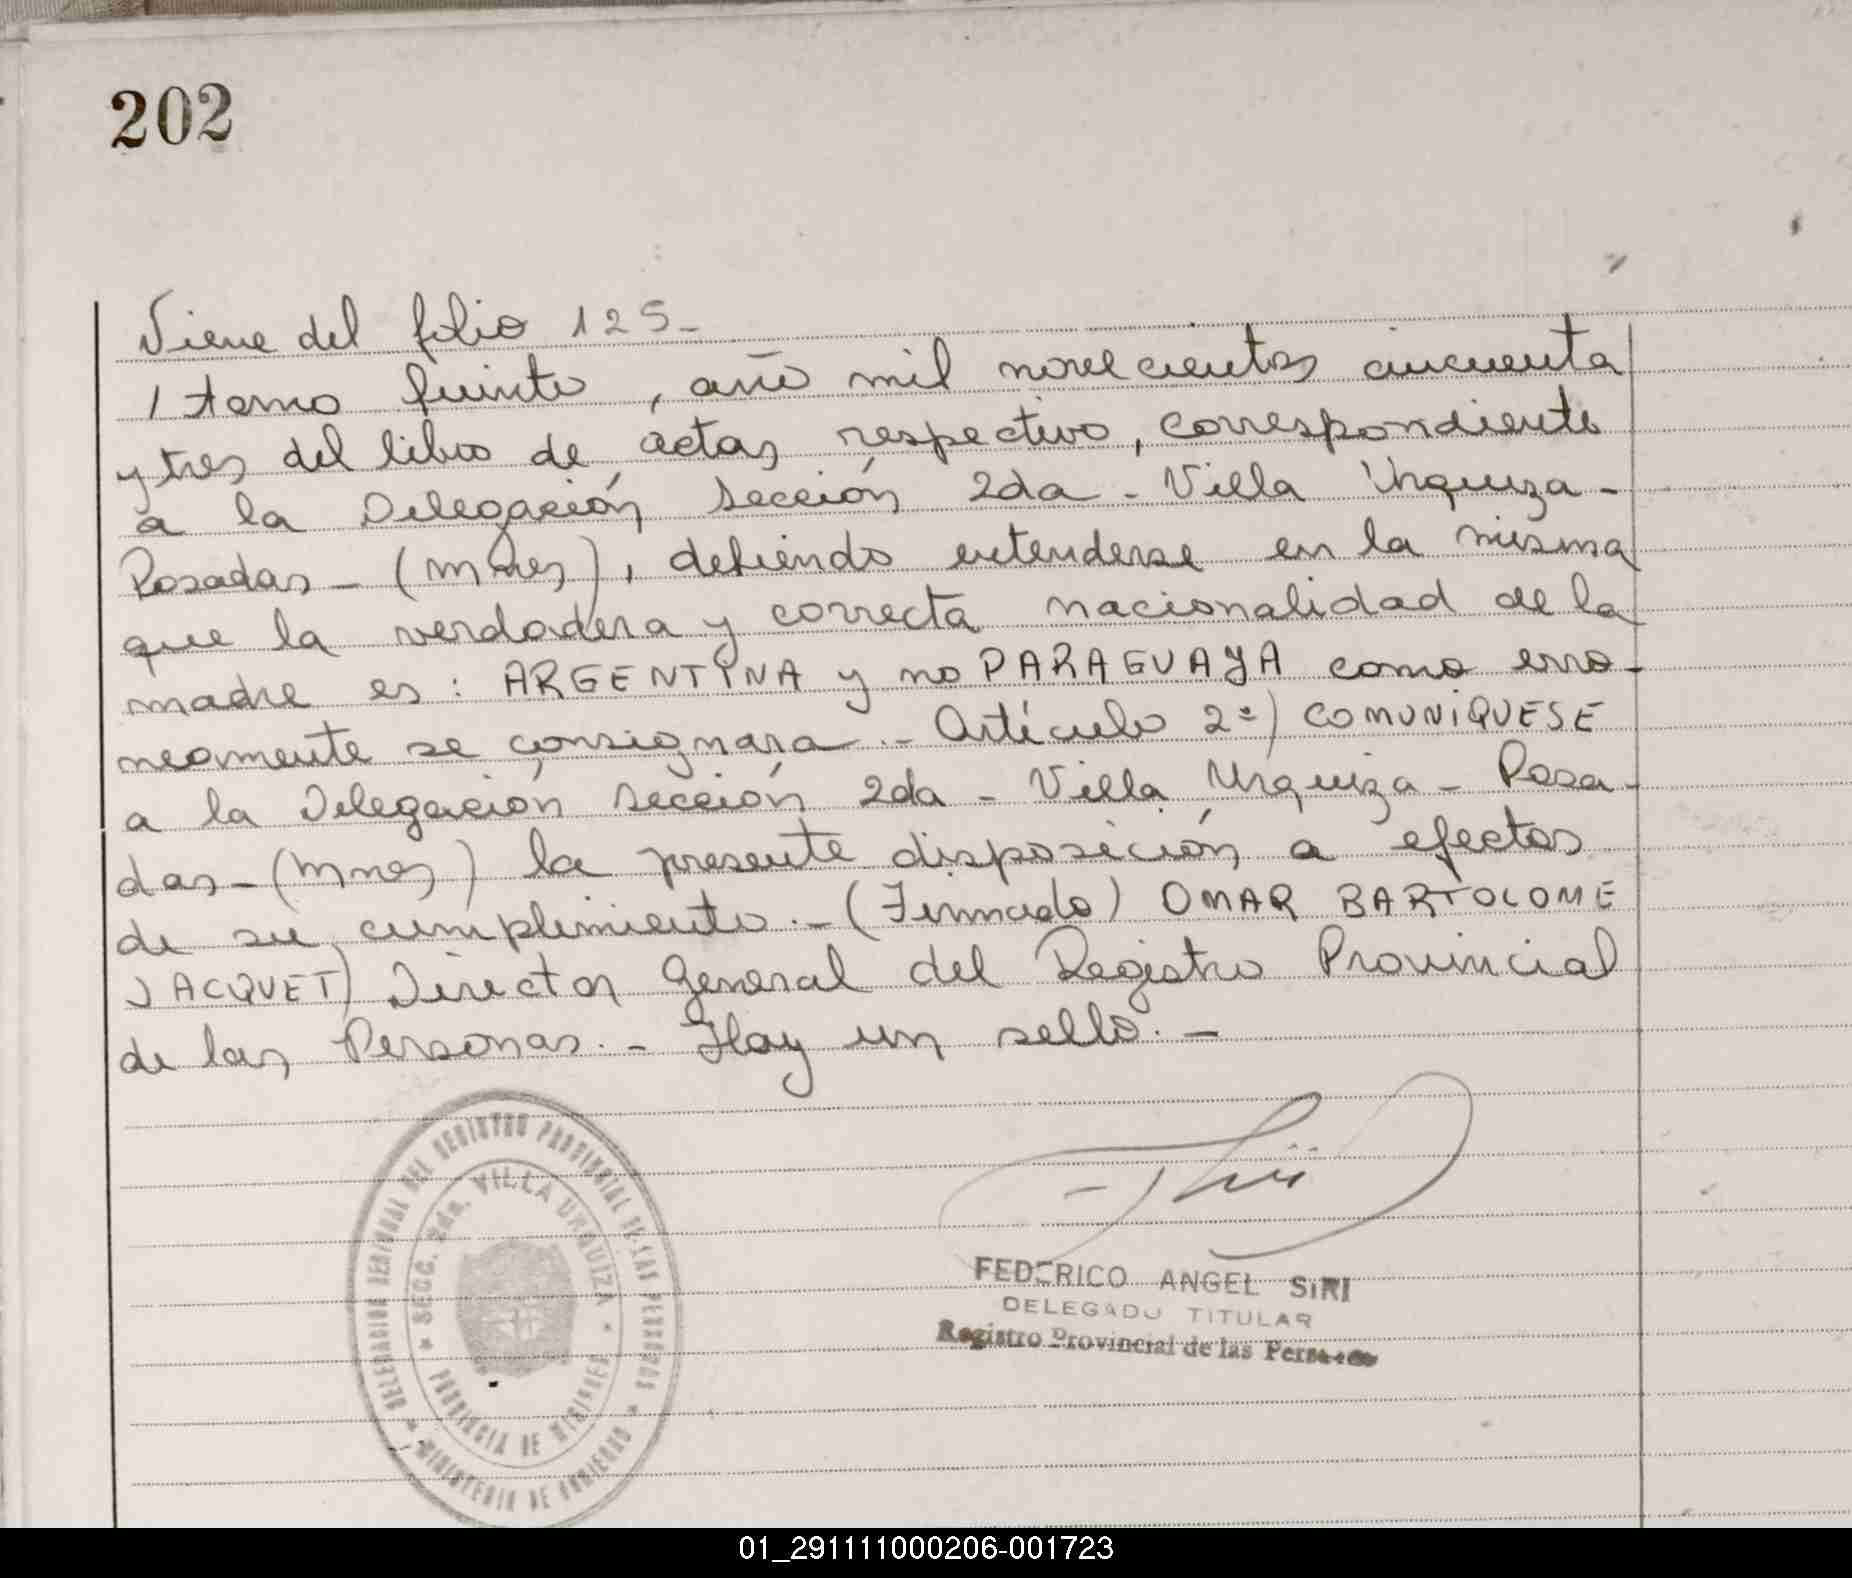 202
Viene del folio 125-
/ tomo quinto, año mil novecientos cincuenta
y tres del libro de actas respectivo, correspondiente
a la Delegación Sección 2da - Villa Urquiza -
Posadas - (Mnes), debiendo entenderse en la misma
que la verdadera y correcta nacionalidad de la
madre es: ARGENTINA y no PARAGUAYA como erro-
neamente se consignara.- Artículo 2º) COMUNIQUESE
a la Delegación Sección 2da - Villa Urquiza - Posa-
das - (Mnes) la presente disposición a efectos
de su cumplimiento.- (Firmado) OMAR BARTOLOME
JACQUET) Director General del Registro Provincial
de las Personas.- Hay un sello.-
DELEGACION SERIONAL DEL REGISTRO PROVINCIAL DE LAS PERSONAS
★ MINISTERIO DE GOBIERNO ★
★ SECC. 2da. VILLA URQUIZA ★
PROVINCIA DE MISIONES
FEDERICO ANGEL SIRI
DELEGADO TITULAR
Registro Provincial de las Personas
01_291111000206-001723